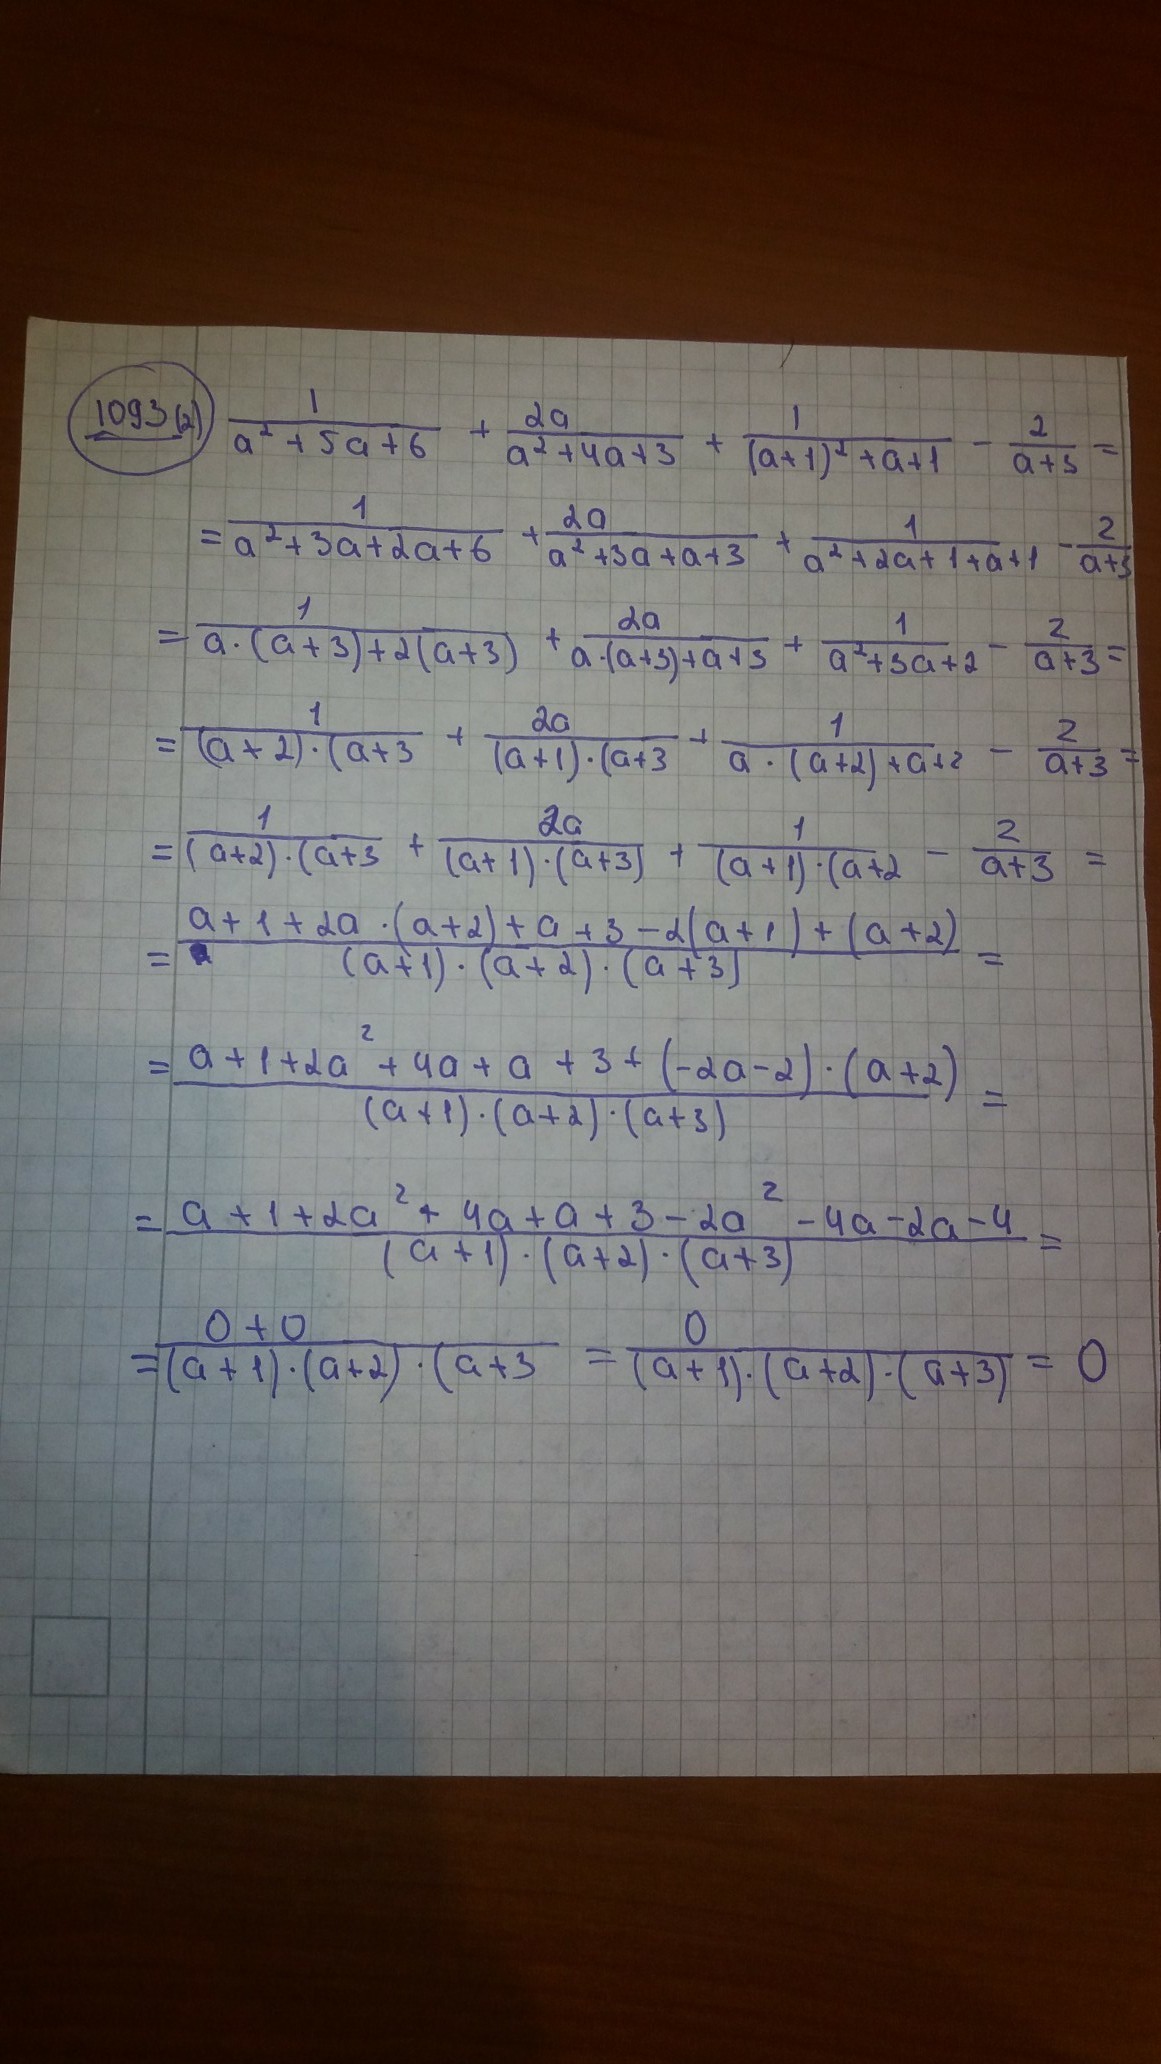 1093(2) 1/(a² + 5a + 6) + 2a/(a² + 4a + 3) + 1/((a+1)² + a + 1) - 2/(a+3) =
= 1/(a² + 3a + 2a + 6) + 2a/(a² + 3a + a + 3) + 1/(a² + 2a + 1 + a + 1) - 2/(a+3)
= 1/(a · (a+3) + 2(a+3)) + 2a/(a · (a+3) + a + 3) + 1/(a² + 3a + 2) - 2/(a+3) =
= 1/((a+2) · (a+3) + 2a/((a+1) · (a+3) + 1/(a · (a+2) + a + 2) - 2/(a+3) =
= 1/((a+2) · (a+3) + 2a/((a+1) · (a+3)) + 1/((a+1) · (a+2) - 2/(a+3) =
= (a + 1 + 2a · (a+2) + a + 3 - 2(a+1) + (a+2))/((a+1) · (a+2) · (a+3)) =
= (a + 1 + 2a² + 4a + a + 3 + (-2a-2) · (a+2))/((a+1) · (a+2) · (a+3)) =
= (a + 1 + 2a² + 4a + a + 3 - 2a² - 4a - 2a - 4)/((a+1) · (a+2) · (a+3)) =
= (0 + 0)/((a+1) · (a+2) · (a+3) = 0/((a+1) · (a+2) · (a+3)) = 0